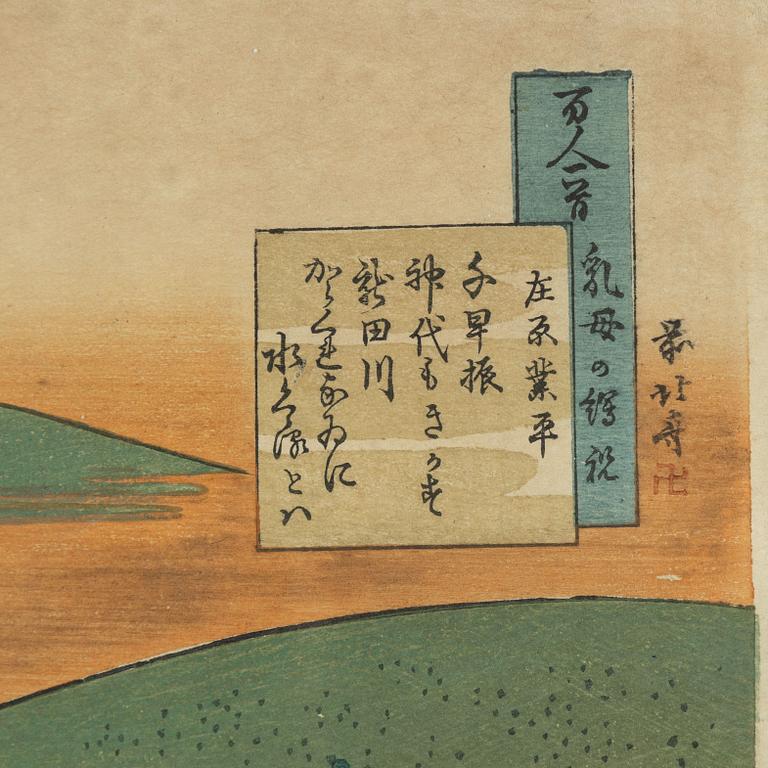 百人一首 乳母の繪說
前北斎
卍
在原業平
千早振
神代もきかす
龍田川
からくれなゐに
水くゝるとハ